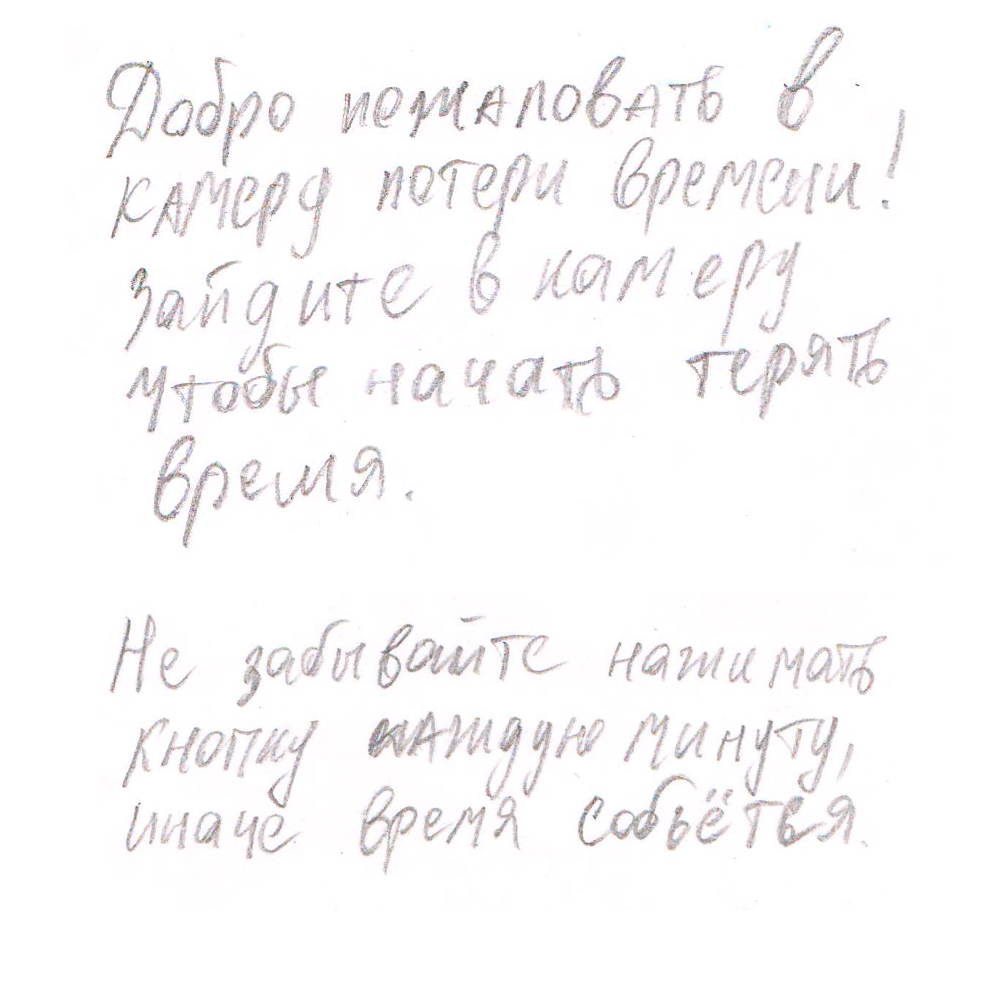 Добро пожаловать в
камеру потери времени!
Зайдите в камеру
чтобы начать терять
время.
Не забывайте нажимать
кнопку каждую минуту,
иначе время собьётся.